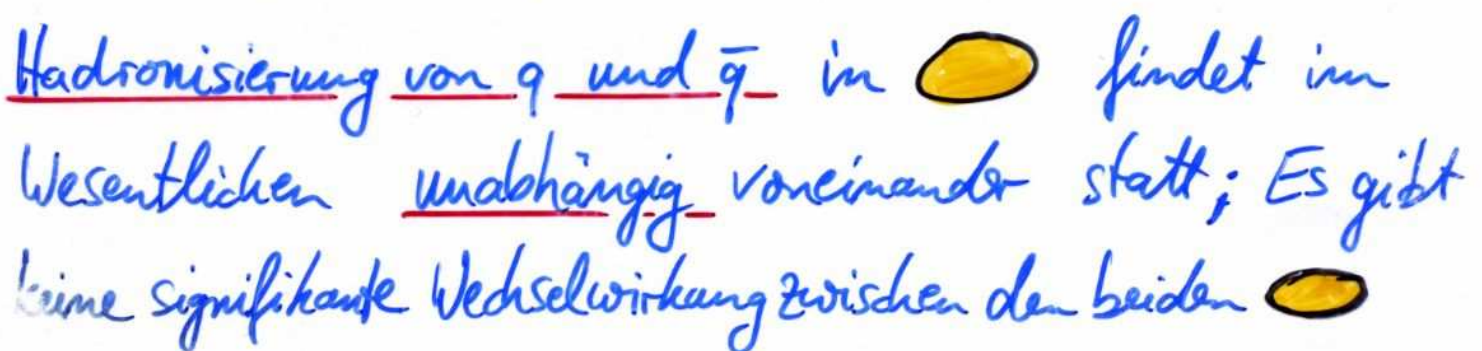 Hadronisierung von q und q̄ in findet im
Wesentlichen unabhängig voneinander statt; Es gibt
keine signifikante Wechselwirkung zwischen den beiden